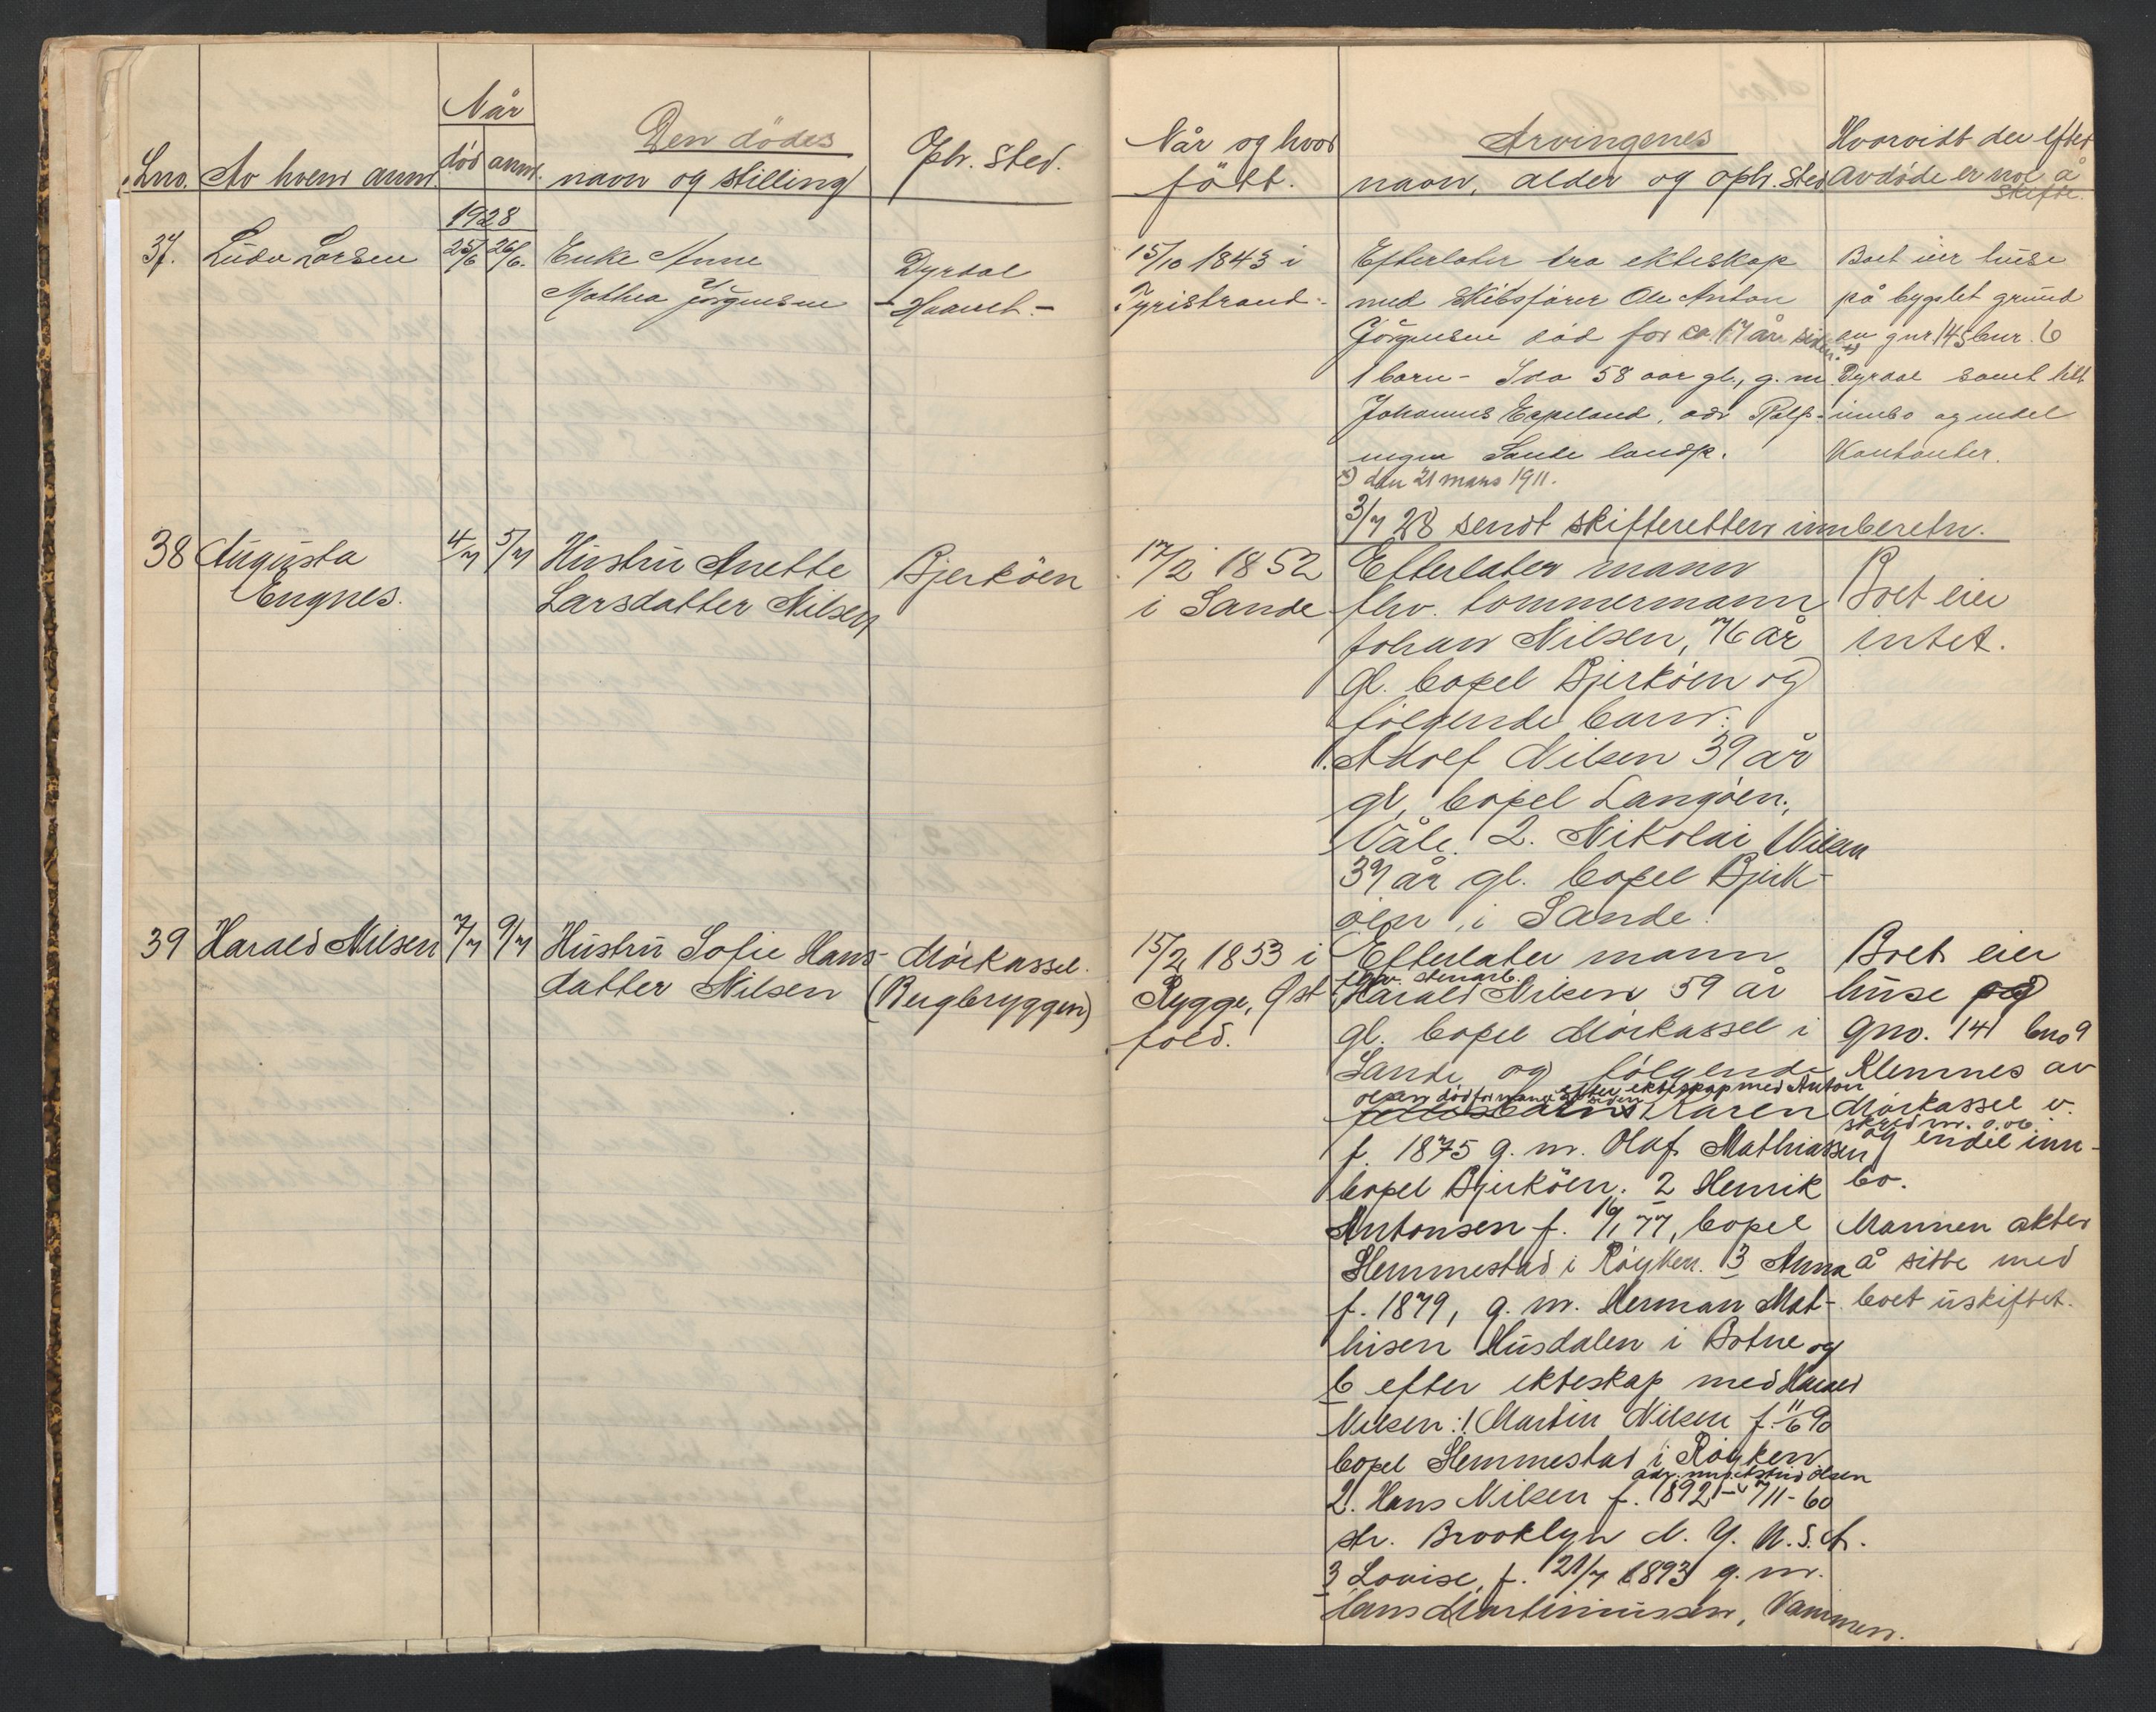 Lno. Av hvem anm. Når død anm. Den dødes navn og stilling Oph. sted.
Når og hvor født. Arvingenes navn, alder og oph. sted Hvorvidt der efter avdøde er noe å skifte.
1928
37. Luda Larsen 25/6 26/6. Enke Anne
Mathea Jørgensen
Dyrdal
- Haavet. -
15/10 1843 i
Tyristrand.
Efterlater fra ekteskap
med skibsfører Ole Anton
Jørgensen død for ca 17 år siden. x)
1 barn - Ida 58 aar gl., g. m.
Johannes Eppeland, adr
Sande landp.
x) den 21 mars 1911.
3/7 28 sendt skifteretten innberetn.
Boet eier huse
på bygslet grund
av gnr 145 bnr. 6
Dyrdal samt litt
innbo og endel
Kontanter.
38 Augusta
Engnes.
4/7 5/7 Hustru Anette
Larsdatter Nilsen
Bjerköen
17/2 1852
i Sande
Efterlater mann
fhv. tømmermann
Johan Nilsen, 76 år
gl. bopel Bjerköen og
følgende barn:
1. Adolf Nilsen 39 år
gl, bopel Langøen,
Våle. 2. Nikolai Nilsen
37 år gl. bopel Bjerk-
öen, i Sande.
Boet eier
intet.
39 Harald Nilsen 7/7 9/7 Hustru Sofie Hans-
datter Nilsen
Mörkassel.
(Bergbryggen)
15/2 1853 i
Rygge, Øst
fold.
Efterlater mann
fhv. stenarb.
Harald Nilsen 59 år
gl. bopel Mörkassel i
Sande og følgende
efter ekteskap med Anton
Olsen død for mange år siden
Karen
f. 1875 g. m. Olaf Mathiassen
bopel Bjerköen. 2 Henrik
Antonsen f. 16/1 77, bopel
Slemmestad i Røyken. 3 Anna
f. 1879, g. m. Herman Mat-
hisen Husdalen i Botne og
b efter ekteskap med Harald
Nilsen: 1 Martin Nilsen f. 11/6 90
bopel Slemmestad i Røyken
adr. Olsen
2. Hans Nilsen f. 1892 - 711 - 60
str. Brooklyn N. Y. U.S.A.
3 Lovise, f. 21/7 1893 g. m.
Hans Martinussen,
Boet eier
huse på
gno. 141 bno 9
Klemnes av
Mörkassel v.
og endel inn-
bo.
Mannen akter
å sitte med
boet uskiftet.